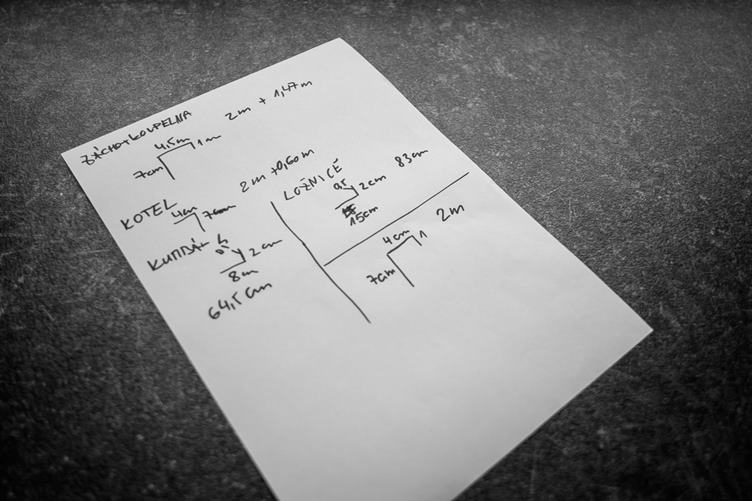 ZÁCHOD+KOUPELNA 2m + 1,47m
4,5m 1m
7cm
KOTEL 2m+0,60m
4cm 7cm
0,5 2cm
8cm
64,5 cm
LOŽNICE 83cm
0,5 2cm
15cm
2m
4cm 1
7cm